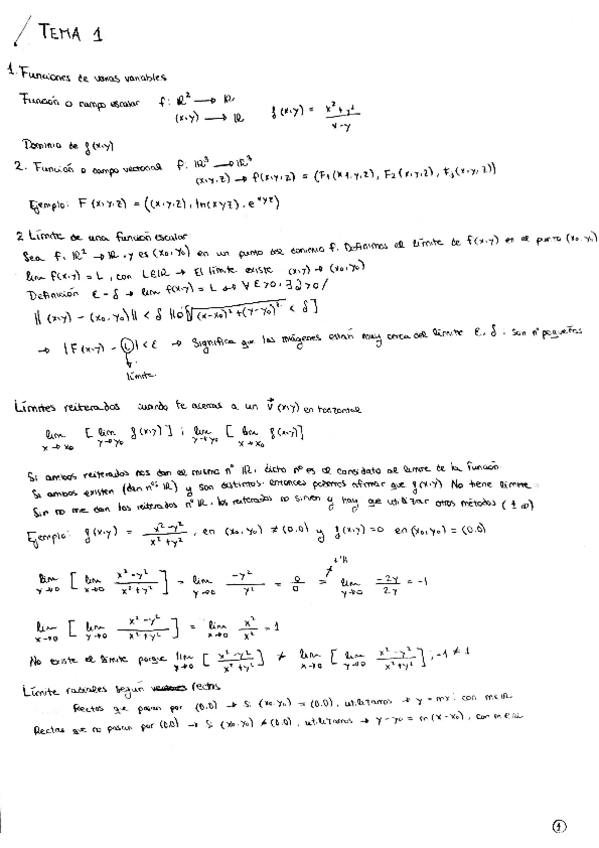 TEMA 1
1. Funciones de varias variables
Función o campo escalar f: ℝ² → ℝ
(x,y) → ℝ f(x,y) = (x²+y²)/(x-y)
Dominio de f(x,y)
2. Función o campo vectorial f: ℝ³ → ℝ³
(x,y,z) → f(x,y,z) = (F₁(x,y,z), F₂(x,y,z), F₃(x,y,z))
Ejemplo: F(x,y,z) = ((x,y,z), ln(xyz), e^xyz)
2 Límite de una función escalar
Sea f: ℝ² → ℝ, y es (x₀,y₀) en un punto del dominio f. Definimos el límite de f(x,y) en el punto (x₀,y₀)
lim f(x,y) = L, con L∈ℝ → El límite existe (x,y) → (x₀,y₀)
Definición ε-δ → lim f(x,y) = L ↔ ∀ε>0, ∃δ>0/
‖(x,y) - (x₀,y₀)‖ < δ √((x-x₀)²+(y-y₀)²) < δ]
→ |F(x,y) - L| < ε → Significa que las imágenes están muy cerca del límite ε, δ: son nº pequeños
límite.
Límites reiterados cuando te acercas a un v⃗(x,y) en horizontal
lim x→x₀ [lim y→y₀ f(x,y)] ; lim y→y₀ [lim x→x₀ f(x,y)]
Si ambos reiterados nos dan el mismo nº ℝ, dicho nº es el candidato al límite de la función
Si ambos existen (dan nºs ℝ) y son distintos, entonces podemos afirmar que f(x,y) No tiene límite
Si no me dan los reiterados nº ℝ, los reiterados no sirven y hay que utilizar otros métodos (±∞)
Ejemplo: f(x,y) = (x²-y²)/(x²+y²), en (x₀,y₀) ≠ (0,0) y f(x,y)=0 en (x₀,y₀) = (0,0)
L'H
lim y→0 [lim x→0 (x²-y²)/(x²+y²)] = lim y→0 -y²/y² = 0/0 = lim y→0 -2y/2y = -1
lim x→0 [lim y→0 (x²-y²)/(x²+y²)] = lim x→0 x²/x² = 1
No existe el límite porque lim y→0 [(x²-y²)/(x²+y²)] ≠ lim x→0 [lim y→0 (x²-y²)/(x²+y²)]; -1 ≠ 1
Límite radiales según rectas
Rectas que pasan por (0,0) → Si (x₀,y₀) = (0,0), utilizamos → y = mx; con m∈ℝ
Rectas que no pasan por (0,0) → Si (x₀,y₀) ≠ (0,0), utilizamos → y-y₀ = m(x-x₀), con m∈ℝ
1